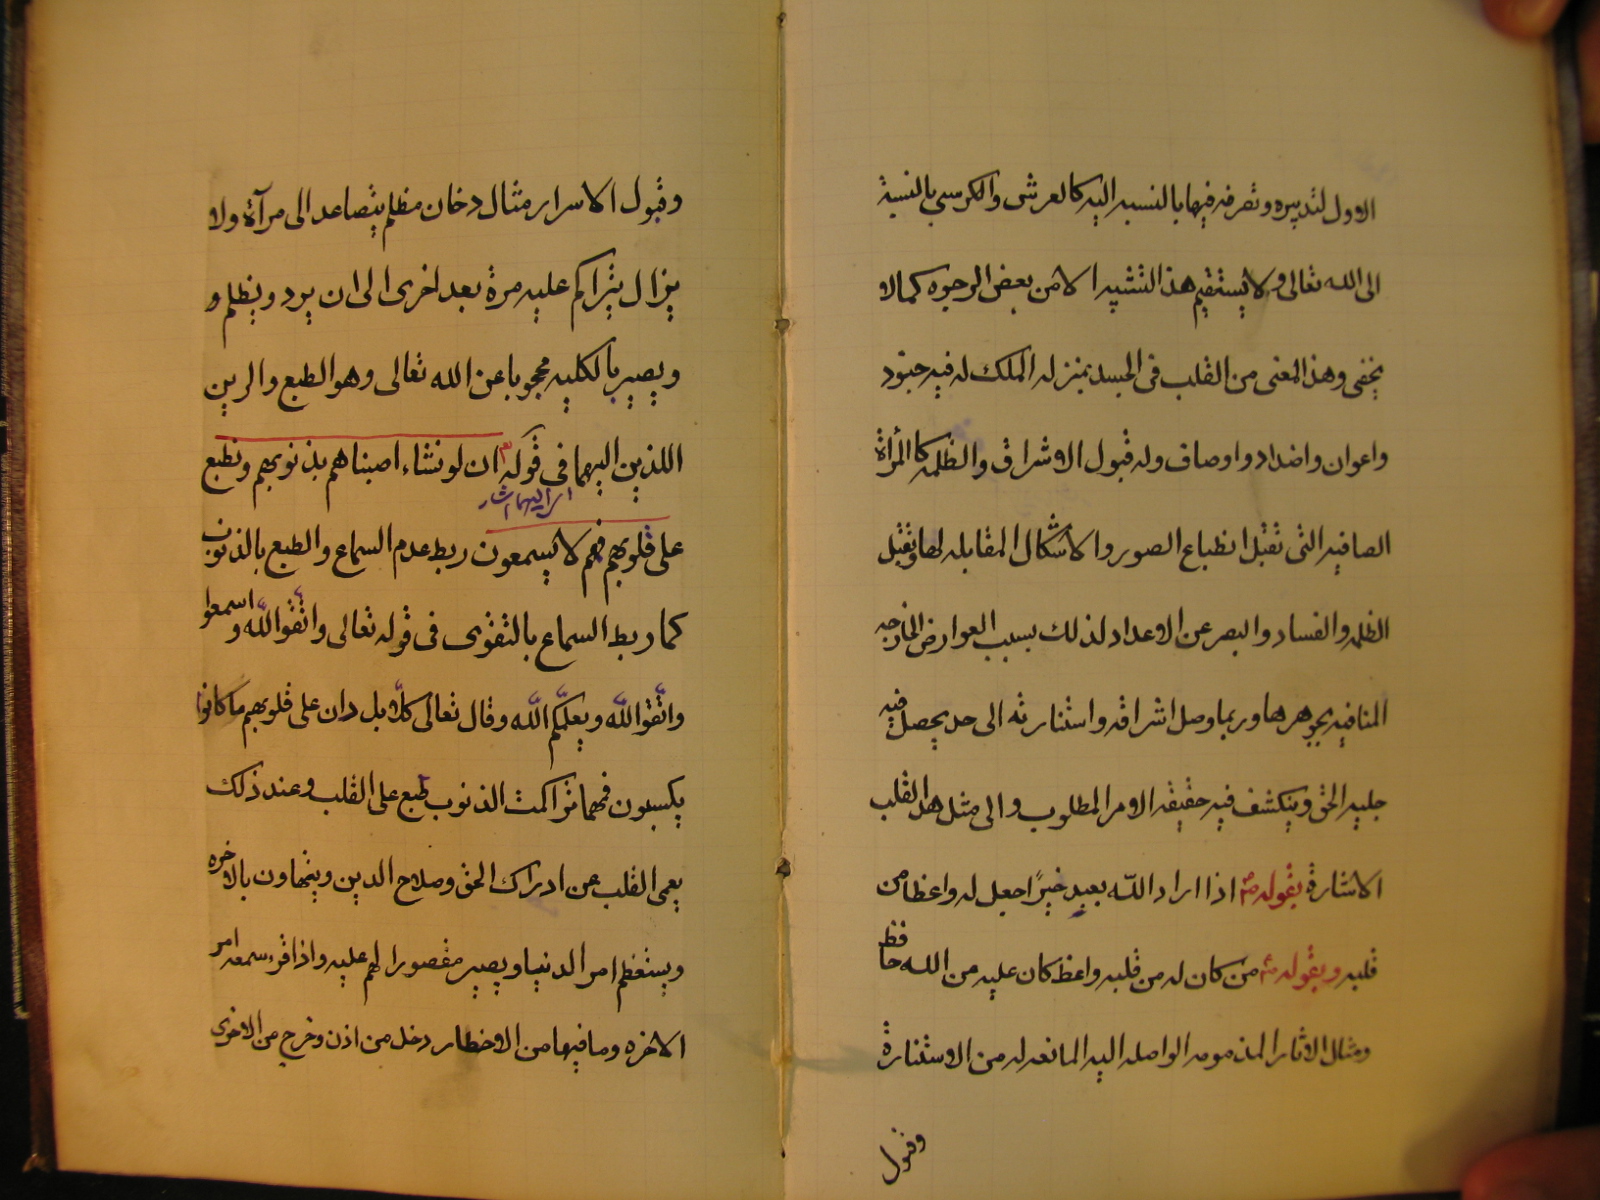 الاول لتدبيره وتصرفه فيها بالنسبه اليه كالعرش والكرسي بالنسبة
الى الله تعالى ولا يستقيم هذا التشبيه الا من بعض الوجوه كما لا
يخفى وهذا المعنى من القلب فى الجسد بمنزله الملك له فيه جنود
واعوان واضداد واوصاف وله قبول الاشراق والظلمه كالمرأة
الصافيه التى تقبل انطباع الصور والاشكال المقابله لها وتقبل
الظلمه والفساد والبصر عن الاعداد لذلك بسبب العوارض الخارجه
المنافيه بجوهرها وربما وصل اشراقه واستنارته الى حد يحصل فيه
جليه الحق وينكشف فيه حقيقه الامر المطلوب والى مثل هذا القلب
الاشارة بقوله ص اذا اراد الله بعبد خيرًا جعل له واعظا من
قلبه وبقوله ص من كان له من قلبه واعظ كان عليه من الله حافظ
ومثال الاثار المذمومه الواصله اليه المانعه له من الاستنارة
وقبول
وقبول الاسرار مثال دخان مظلم يتصاعد الى مرآة ولا
يزال يتراكم عليه مرة بعد اخرى الى ان يرد ويظلم و
ويصير بالكليه محجوبا عن الله تعالى وهو الطبع والرين
اللذين اليهما فى قوله ان لو نشاء اصبناهم بذنوبهم ونطبع
اليهما اشار
على قلوبهم فهم لا يسمعون ربط عدم السماع والطبع بالذنوب
كما ربط السماع بالتقوى فى قوله تعالى واتقوا الله واسمعوا
واتقوا الله ويعلمكم الله وقال تعالى كلا بل ران على قلوبهم ما كانوا
يكسبون فمهما تراكمت الذنوب طبع على القلب وعند ذلك
يعمى القلب عن ادراك الحق وصلاح الدين ويتهاون بالاخره
ويستعظم امر الدنيا ويصير مقصور الهم عليه واذا قرء سمعه امر
الاخره وما فيها من الاخطار دخل من اذن وخرج من الاخرى